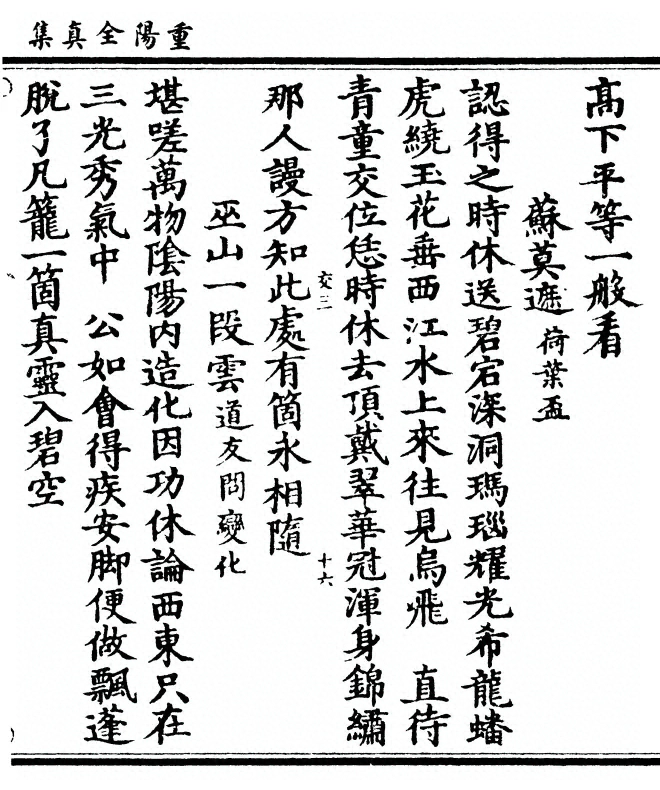 重陽全真集
髙下平等一般看
蘇莫遮 荷葉盃
認得之時休送碧宕深洞瑪瑙耀光希龍蟠
虎繞玉花垂西江水上來往見烏飛　直待
青童交位恁時休去頂戴翠華冠渾身錦繡
交三　十六
那人謾方知此處有箇永相隨
巫山一段雲 道友問變化
堪嗟萬物陰陽内造化因功休論西東只在
三光秀氣中　公如會得疾安脚便做飄蓬
脫了凡籠一箇真靈入碧空